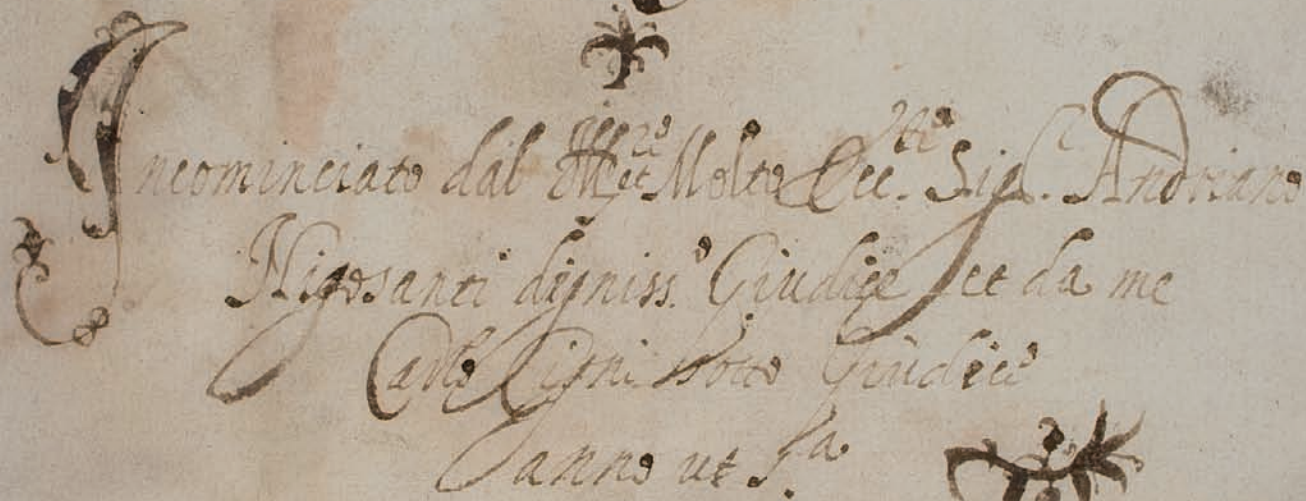 Incominciato dal Ill.re et Molto Ecc.te Sig.r Andriano
Nigosanti digniss.o Giudice et da me
Carlo Cigni sotto Giudice
anno ut s.a